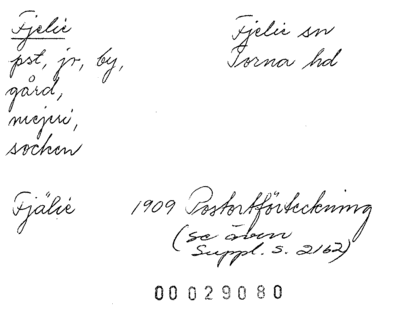 Fjelie
Fjelie sn
pst, jr, by,
Torna hd
gård,
mejeri,
socken
Fjälie 1909 Postortförteckning
(se även
Suppl. s. 2162)
00029080